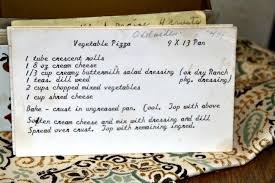 Vegetable Pizza 9 X 13 Pan
1 tube crescent rolls
1 8 oz cream cheese
1/3 cup creamy buttermilk salad dressing (or dry Ranch
1 teas. dill weed pkg. dressing)
2 cups chopped mixed vegetables
1 cup shred cheese
Bake - crust in ungreased pan. Cool. Top with above
Soften cream cheese and mix with dressing and dill
Spread over crust. Top with remaining ingred.